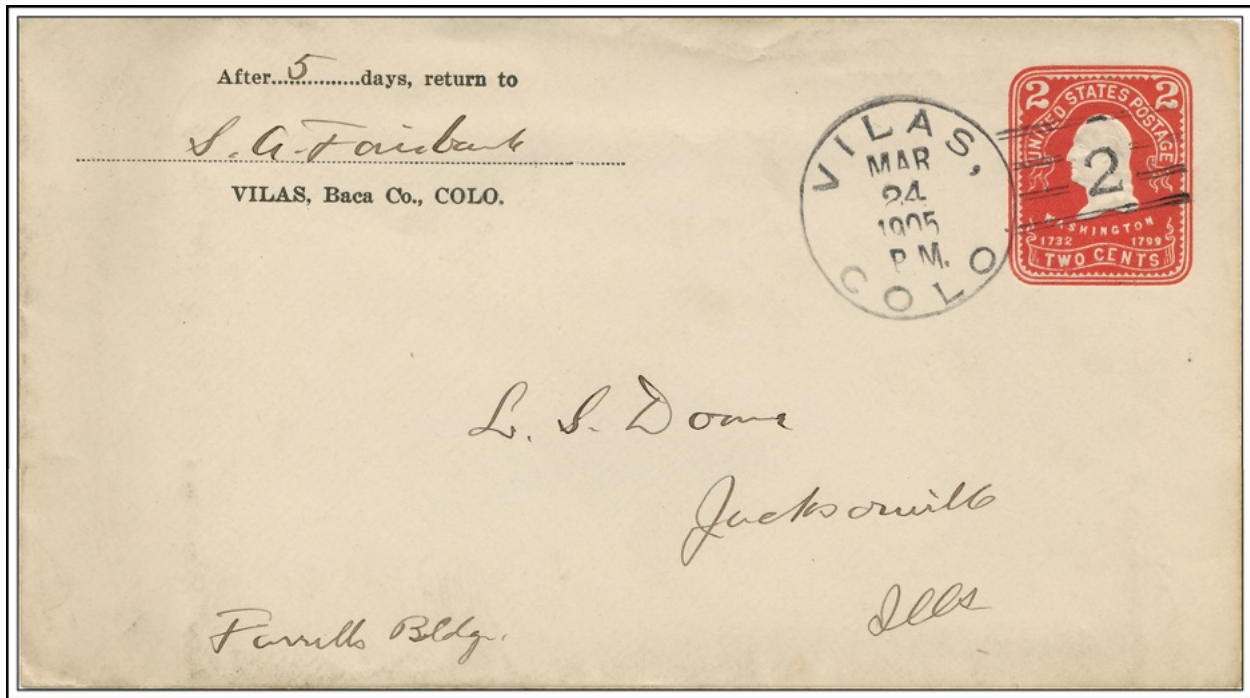 After...5...days, return to
S. A. Fairbank
VILAS, Baca Co., COLO.
VILAS,
MAR
24
1905
P.M.
COLO
2 2
UNITED STATES POSTAGE
2
WASHINGTON
1732 1799
TWO CENTS
L. S. Doane
Jacksonville
Ills
Farrells Bldg.